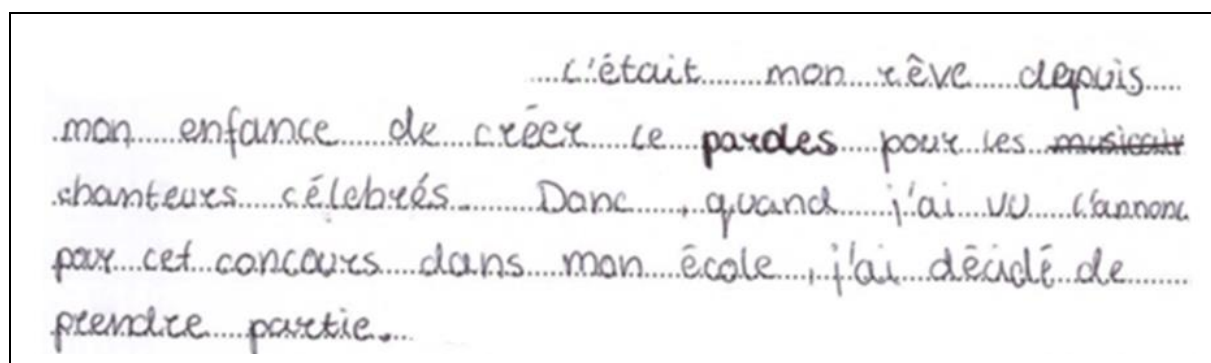 c'était mon rêve depuis
mon enfance de créer le paroles pour les
chanteurs célebrés. Donc, quand j'ai vu l'annonc
pour cet concours dans mon école, j'ai décidé de
prendre partie.